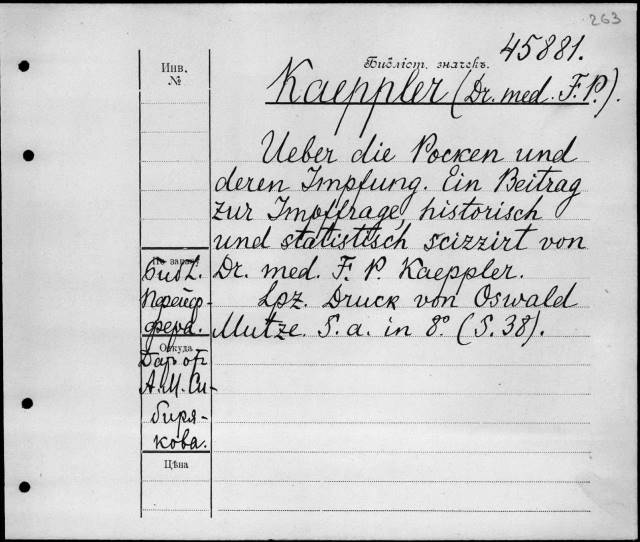 263
Инв.
№
Библіот. значекъ. 45881.
Kaeppler (Dr. med. F. P.).
Ueber die Pocken und
deren Impfung. Ein Beitrag
zur Impffrage, historisch
und statistisch scizzirt von
Dr. med. F. P. Kaeppler.
Lpz. Druck von Oswald
Mutze. S. a. in 8º. (S. 38).
Библ.
Пфейф-
фера.
Откуда
Дар от
А. М. Си-
биря-
кова.
Цѣна